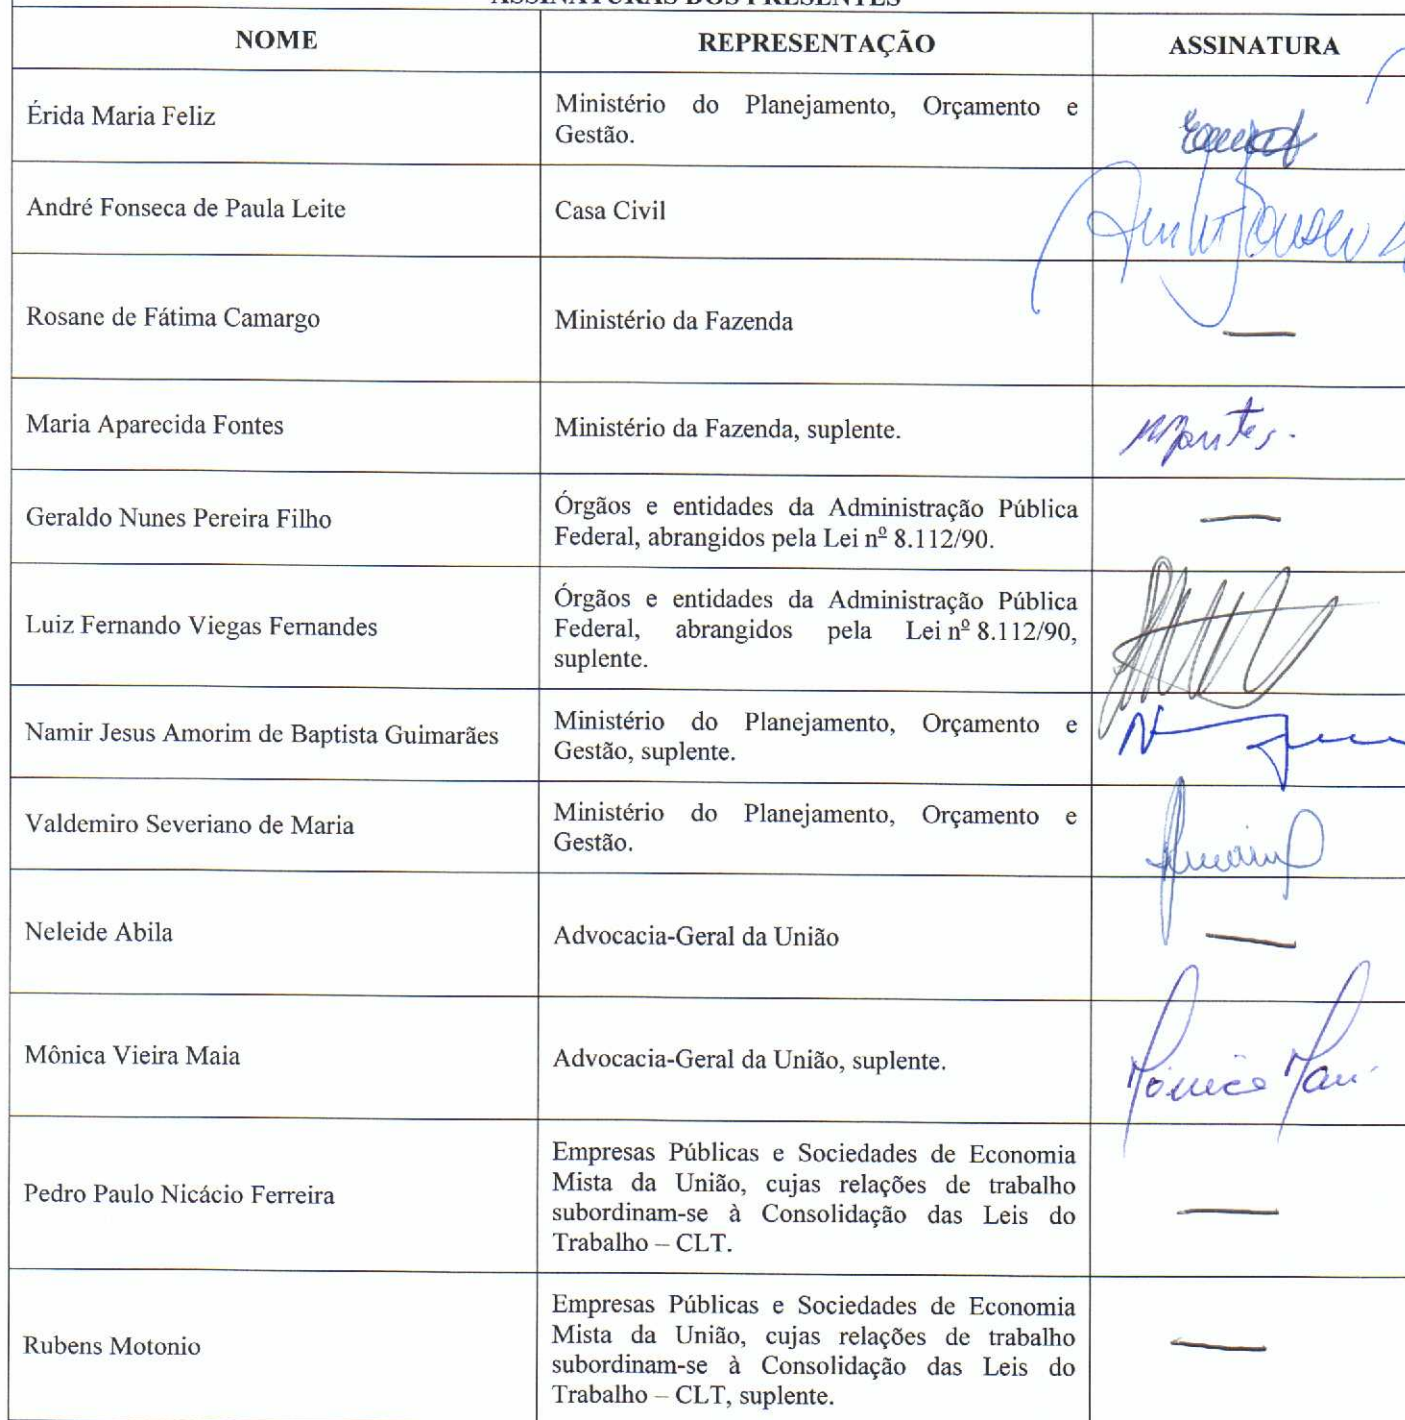 ASSINATURAS DOS PRESENTES
NOME
REPRESENTAÇÃO
ASSINATURA
Érida Maria Feliz
Ministério do Planejamento, Orçamento e
Gestão.
André Fonseca de Paula Leite
Casa Civil
Rosane de Fátima Camargo
Ministério da Fazenda
—
Maria Aparecida Fontes
Ministério da Fazenda, suplente.
Geraldo Nunes Pereira Filho
Órgãos e entidades da Administração Pública
Federal, abrangidos pela Lei nº 8.112/90.
—
Luiz Fernando Viegas Fernandes
Órgãos e entidades da Administração Pública
Federal, abrangidos pela Lei nº 8.112/90,
suplente.
Namir Jesus Amorim de Baptista Guimarães
Ministério do Planejamento, Orçamento e
Gestão, suplente.
Valdemiro Severiano de Maria
Ministério do Planejamento, Orçamento e
Gestão.
Neleide Abila
Advocacia-Geral da União
—
Mônica Vieira Maia
Advocacia-Geral da União, suplente.
Pedro Paulo Nicácio Ferreira
Empresas Públicas e Sociedades de Economia
Mista da União, cujas relações de trabalho
subordinam-se à Consolidação das Leis do
Trabalho – CLT.
—
Rubens Motonio
Empresas Públicas e Sociedades de Economia
Mista da União, cujas relações de trabalho
subordinam-se à Consolidação das Leis do
Trabalho – CLT, suplente.
—